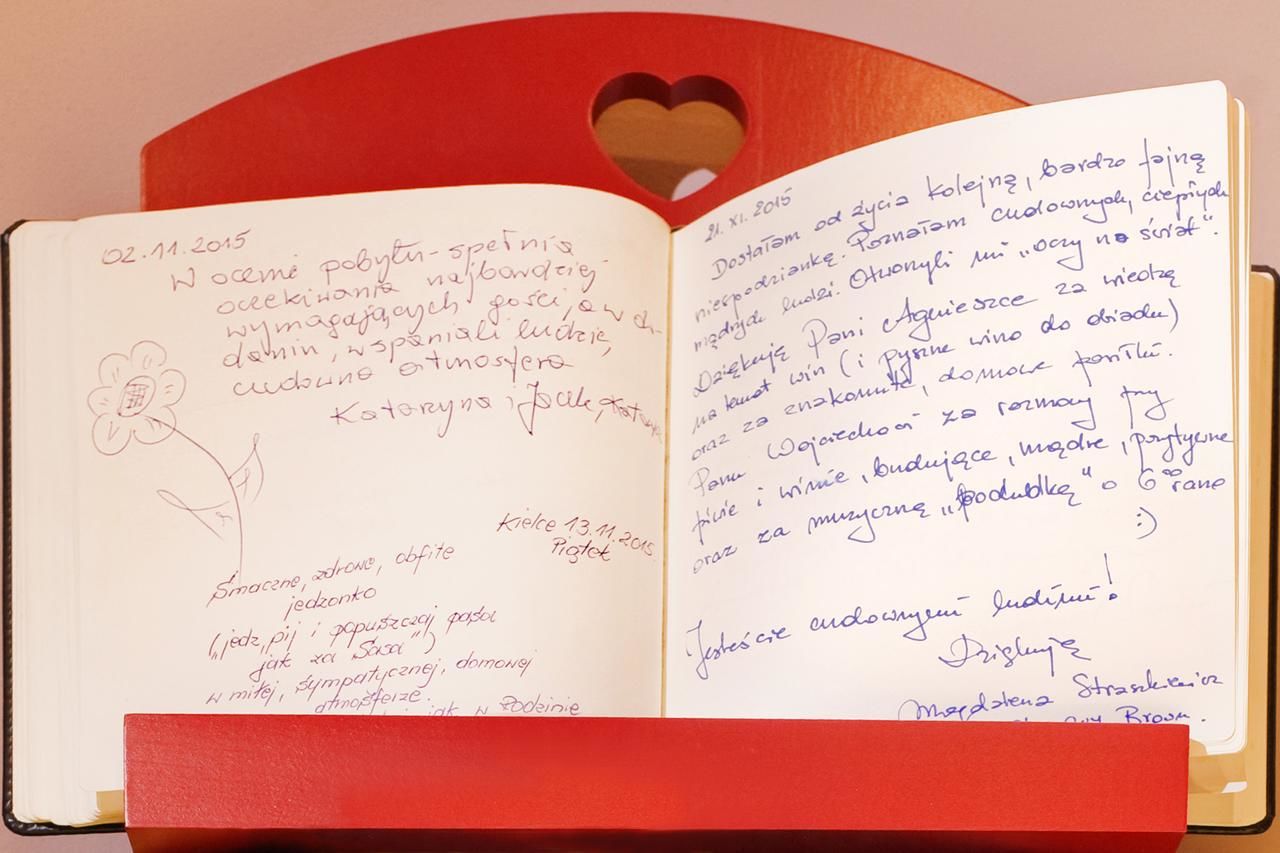 02.11.2015
W ocenie pobytu - spełnia
oczekiwania najbardziej
wymagających gości, a w do-
daniu, wspaniali ludzie,
cudowna atmosfera
Katarzyna i Jacek,
Kielce 13.11.2015
Piątek
Smaczne, zdrowe, obfite
jedzonko
(„jedz, pij i popuszczaj pasa
jak za Sasa")
w miłej, sympatycznej, domowej
atmosferze.
jak w Rodzinie
21. XI. 2015
Dostałam od życia kolejną, bardzo fajną
niespodziankę. Poznałam cudownych, ciepłych
mądrych ludzi. Otworzyli mi „oczy na świat".
Dziękuję Pani Agnieszce za wiedzę
na temat win (i pyszne wino do obiadu)
oraz za znakomite, domowe posiłki.
Panu Wojciechowi za rozmowy przy
piwie i winie, budujące, mądre, pozytywne
oraz za muzyczną „pobudkę" o 6⁰⁰ rano
:)
Jesteście cudownymi ludźmi!
Dziękuję
Magdalena Straszkiewicz
Brown.